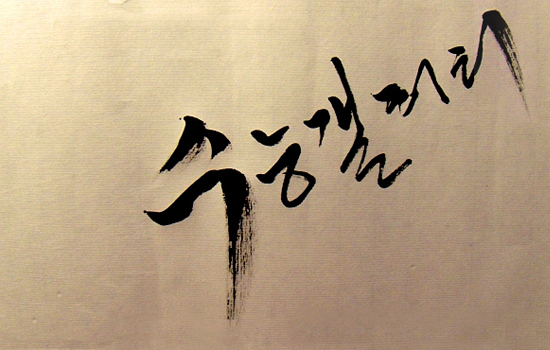 수능갤러리